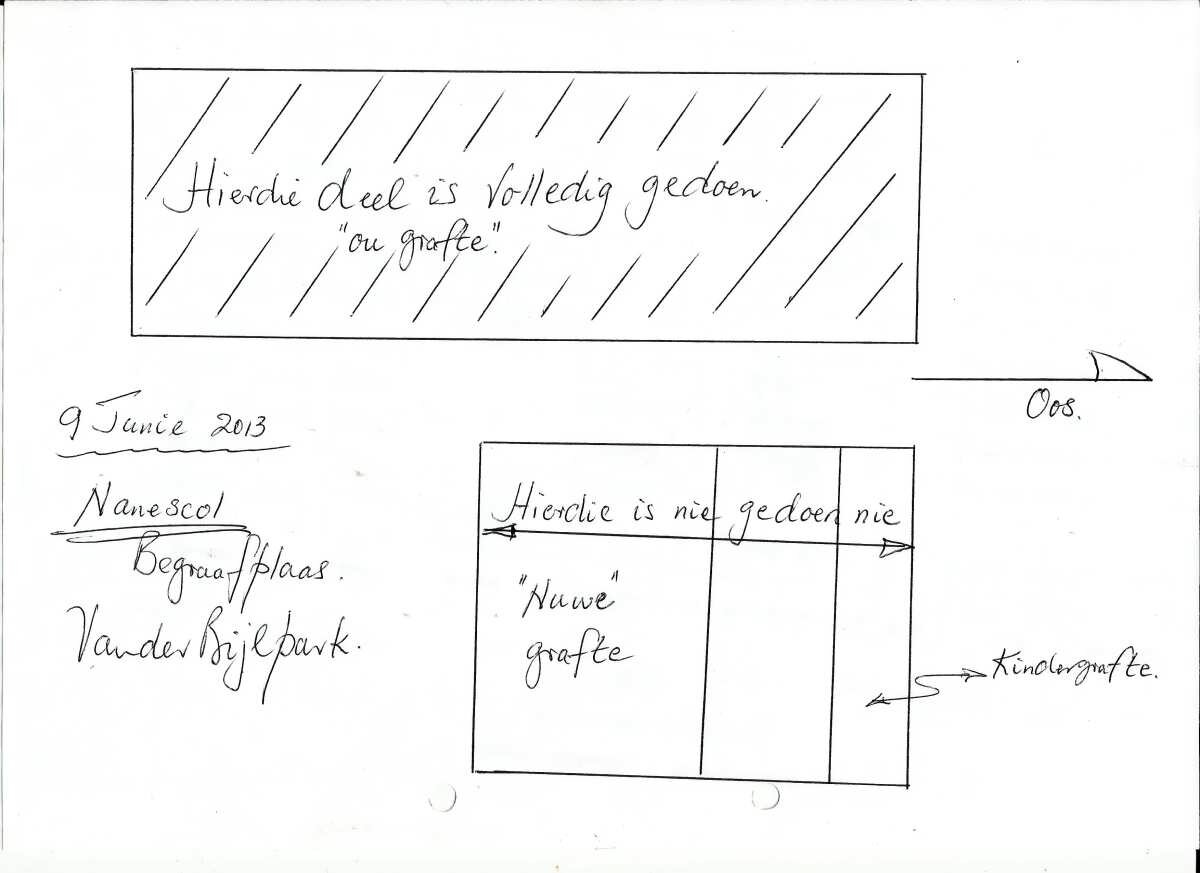 Hierdie deel is volledig gedoen.
"ou grafte".
Oos.
9 Junie 2013
Nanescol
Begraafplaas.
VanderBijlpark.
Hierdie is nie gedoen nie
"Nuwe"
grafte
Kindergrafte.